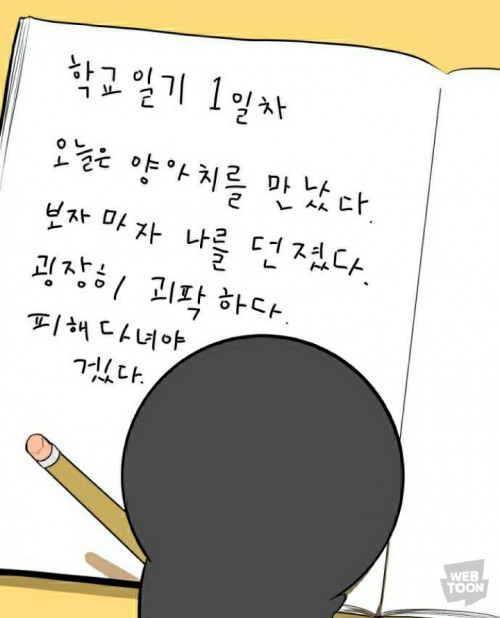 학교일기 1일차
오늘은 양아치를 만났다.
보자마자 나를 던졌다.
굉장히 괴팍하다.
피해다녀야
겠다.
WEB
TOON